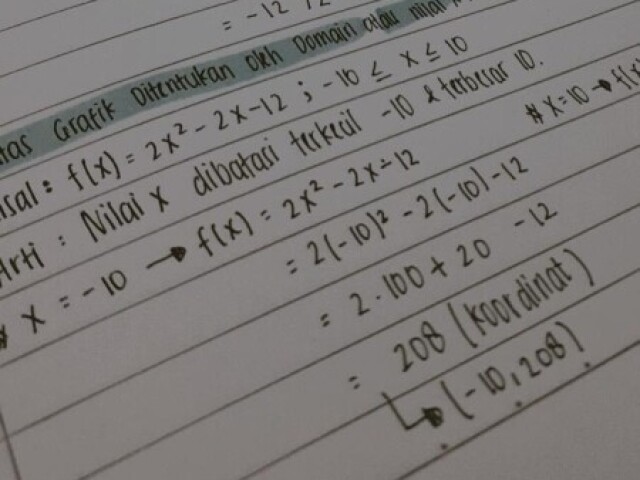 = -12
Grafik Ditentukan Oleh Domain atau nilai
f(x) = 2x² - 2x - 12 ; -10 ≤ x ≤ 10
Arti : Nilai x dibatasi terkecil -10 & terbesar 10.
# x = -10 → f(x) = 2x² - 2x - 12
# x = 10 →
= 2(-10)² - 2(-10) - 12
= 2 . 100 + 20 - 12
= 208 (koordinat)
↳ (-10, 208)